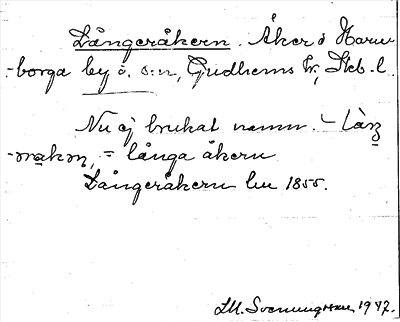 Långeråkern. Åker å Harre
-borga by o. s:n, Gudhems hr, Skb. l.
Nu ej brukat namn. - Làŋ
-råkəɳ, = långa åkern
Långeråkern lm 1855.
LM. Svenungsson 1947.